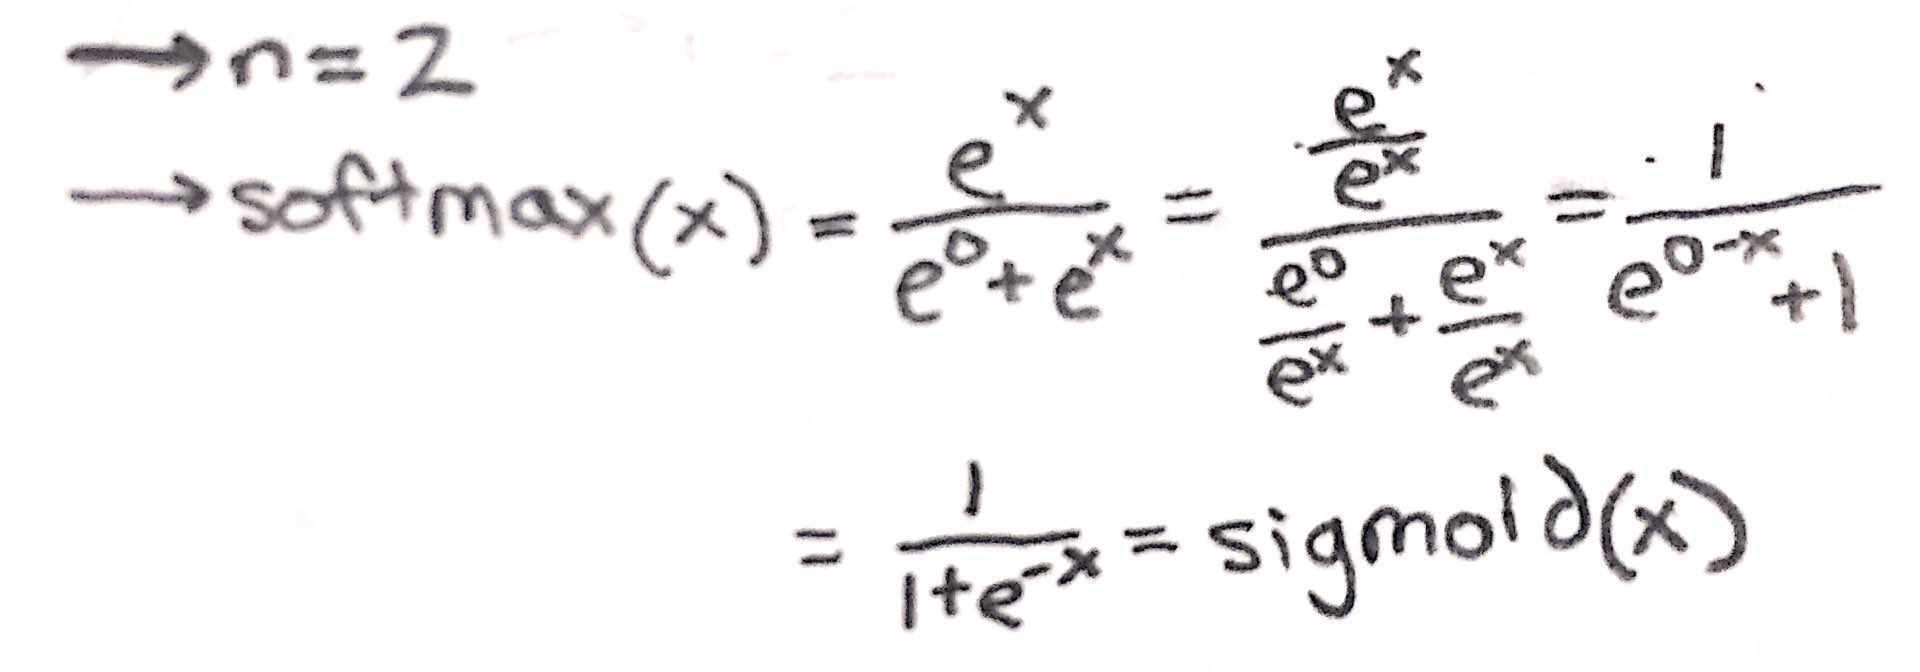 → n = 2
→ softmax(x) = e^x / (e^0 + e^x) = (e^x / e^x) / (e^0 / e^x + e^x / e^x) = 1 / (e^(0-x) + 1)
= 1 / (1 + e^-x) = sigmoid(x)